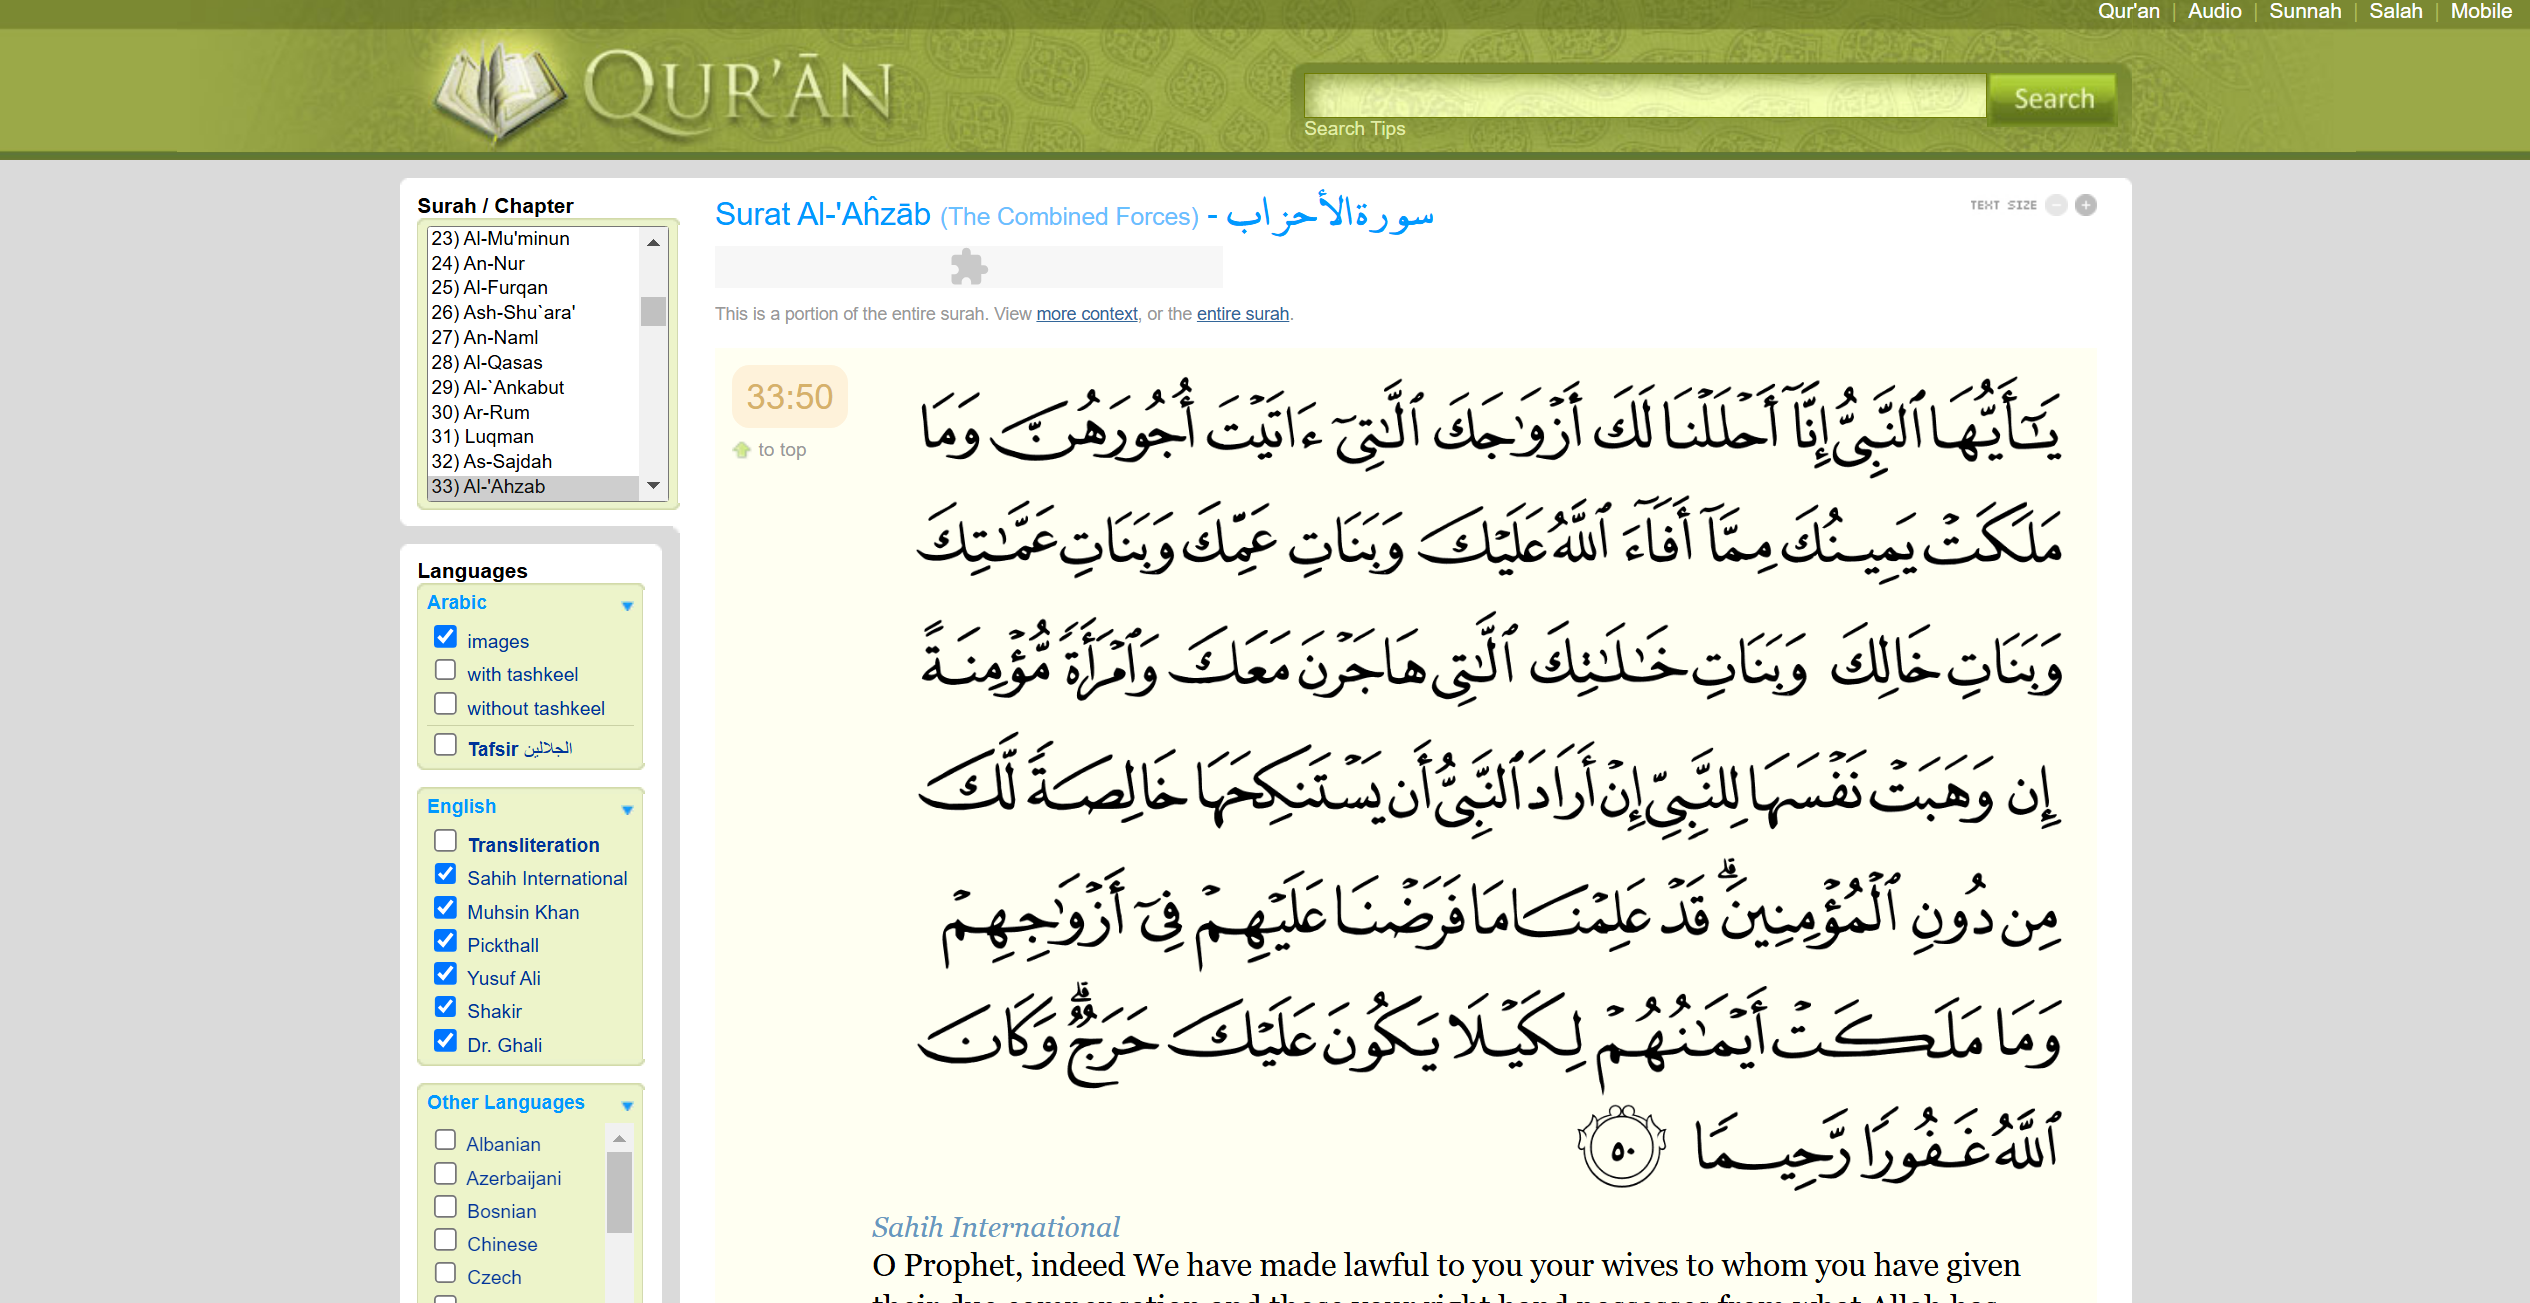 Qur'an | Audio | Sunnah | Salah | Mobile
QUR'ĀN
Search
Search Tips
Surah / Chapter
23) Al-Mu'minun
24) An-Nur
25) Al-Furqan
26) Ash-Shu`ara'
27) An-Naml
28) Al-Qasas
29) Al-`Ankabut
30) Ar-Rum
31) Luqman
32) As-Sajdah
33) Al-'Ahzab
Languages
Arabic
images
with tashkeel
without tashkeel
Tafsir الجلالين
English
Transliteration
Sahih International
Muhsin Khan
Pickthall
Yusuf Ali
Shakir
Dr. Ghali
Other Languages
Albanian
Azerbaijani
Bosnian
Chinese
Czech
Surat Al-'Aĥzāb (The Combined Forces) - سورة الأحزاب
TEXT SIZE
This is a portion of the entire surah. View more context, or the entire surah.
33:50
to top
يَـٰٓأَيُّهَا ٱلنَّبِىُّ إِنَّآ أَحْلَلْنَا لَكَ أَزْوَٰجَكَ ٱلَّـٰتِىٓ ءَاتَيْتَ أُجُورَهُنَّ وَمَا
مَلَكَتْ يَمِينُكَ مِمَّآ أَفَآءَ ٱللَّهُ عَلَيْكَ وَبَنَاتِ عَمِّكَ وَبَنَاتِ عَمَّـٰتِكَ
وَبَنَاتِ خَالِكَ وَبَنَاتِ خَـٰلَـٰتِكَ ٱلَّـٰتِى هَاجَرْنَ مَعَكَ وَٱمْرَأَةً مُّؤْمِنَةً
إِن وَهَبَتْ نَفْسَهَا لِلنَّبِىِّ إِنْ أَرَادَ ٱلنَّبِىُّ أَن يَسْتَنكِحَهَا خَالِصَةً لَّكَ
مِن دُونِ ٱلْمُؤْمِنِينَ ۗ قَدْ عَلِمْنَا مَا فَرَضْنَا عَلَيْهِمْ فِىٓ أَزْوَٰجِهِمْ
وَمَا مَلَكَتْ أَيْمَـٰنُهُمْ لِكَيْلَا يَكُونَ عَلَيْكَ حَرَجٌ ۗ وَكَانَ
ٱللَّهُ غَفُورًا رَّحِيمًا ٥٠
Sahih International
O Prophet, indeed We have made lawful to you your wives to whom you have given